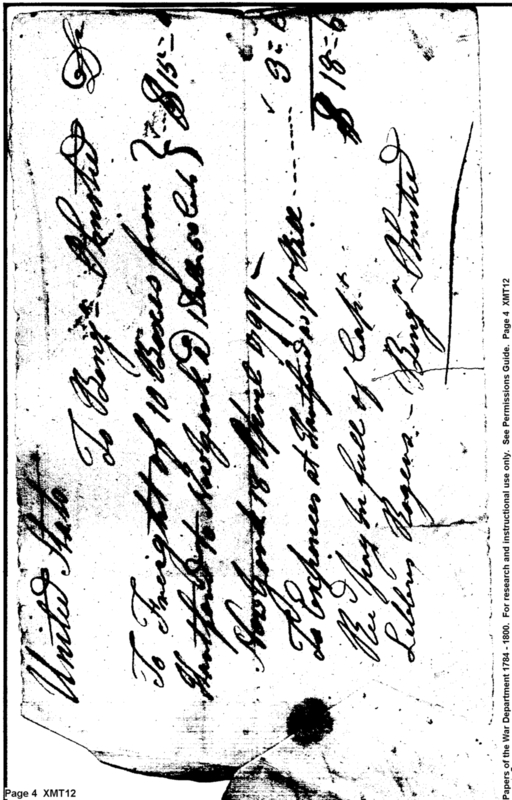 United States
To Benjn Olmsted Dr
To Freight of 10 Boxes from
Hartford to New York @ 1 Doller 50 Cents } $ 15 =
New York 18 April 1799 –
To Expences at Hartford as pr Bill ---- 3 = 6
$ 18 = 6
Recd pay in full of Capt
Rogers – Benjn Olmsted
Page 4 XMT12
Papers of the War Department 1784 - 1800. For research and instructional use only. See Permissions Guide. Page 4 XMT12